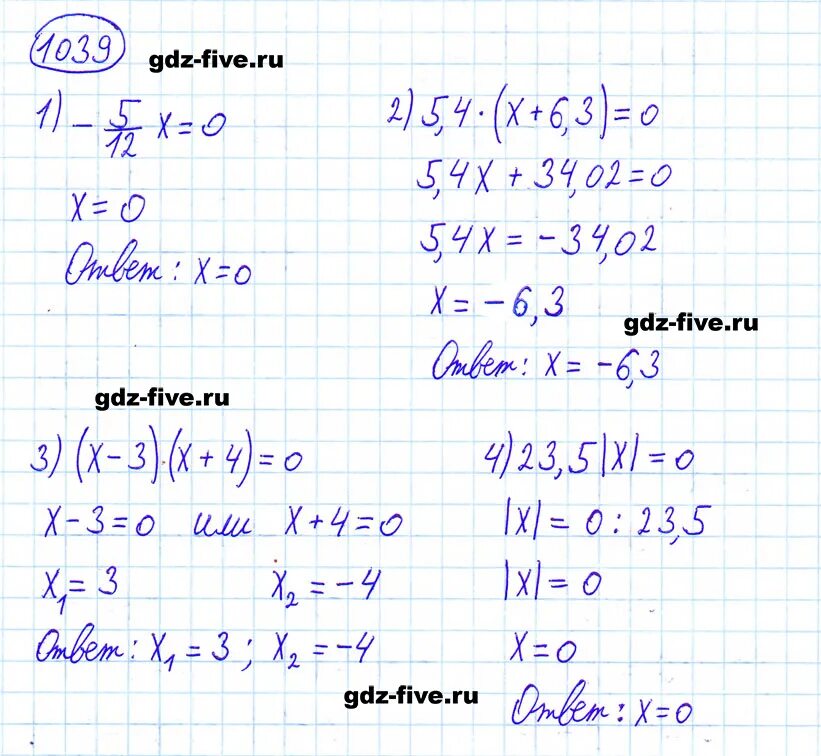 1039
gdz-five.ru
1) - 5/12 x = 0
x = 0
Ответ: x = 0
2) 5,4 · (x + 6,3) = 0
5,4x + 34,02 = 0
5,4x = - 34,02
x = - 6,3
gdz-five.ru
Ответ: x = - 6,3
gdz-five.ru
3) (x - 3) · (x + 4) = 0
x - 3 = 0 или x + 4 = 0
x₁ = 3 x₂ = - 4
Ответ: x₁ = 3; x₂ = - 4
gdz-five.ru
4) 23,5|x| = 0
|x| = 0 : 23,5
|x| = 0
x = 0
Ответ: x = 0